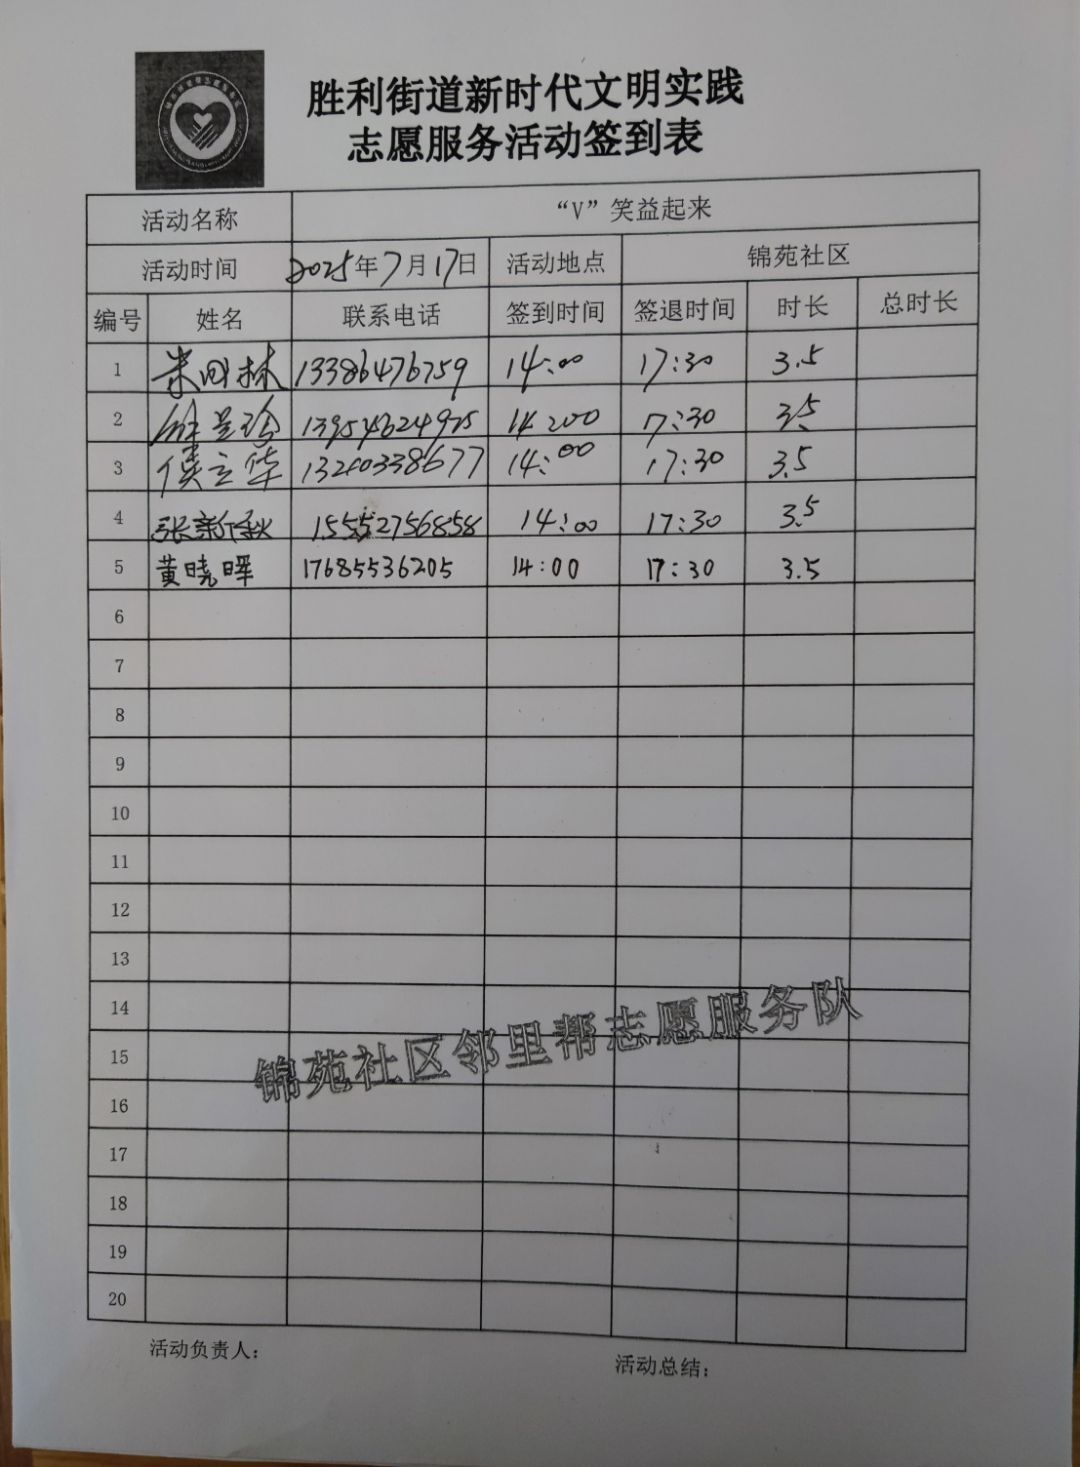 胜利街道新时代文明实践
志愿服务活动签到表
活动名称 “V”笑益起来
活动时间 2025年7月17日 活动地点 锦苑社区
编号 姓名 联系电话 签到时间 签退时间 时长 总时长
1 林 13386476759 14:00 17:30 3.5
2 13954624925 14:00 17:30 3.5
3 侯立华 13280338677 14:00 17:30 3.5
4 张新秋 15552756858 14:00 17:30 3.5
5 黄晓晖 17685536205 14:00 17:30 3.5
6
7
8
9
10
11
12
13
14
锦苑社区邻里帮志愿服务队
15
16
17
18
19
20
活动负责人：
活动总结：